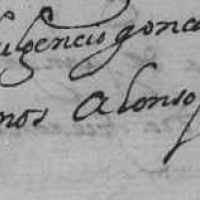 ulgencio gonca
nos Alonso